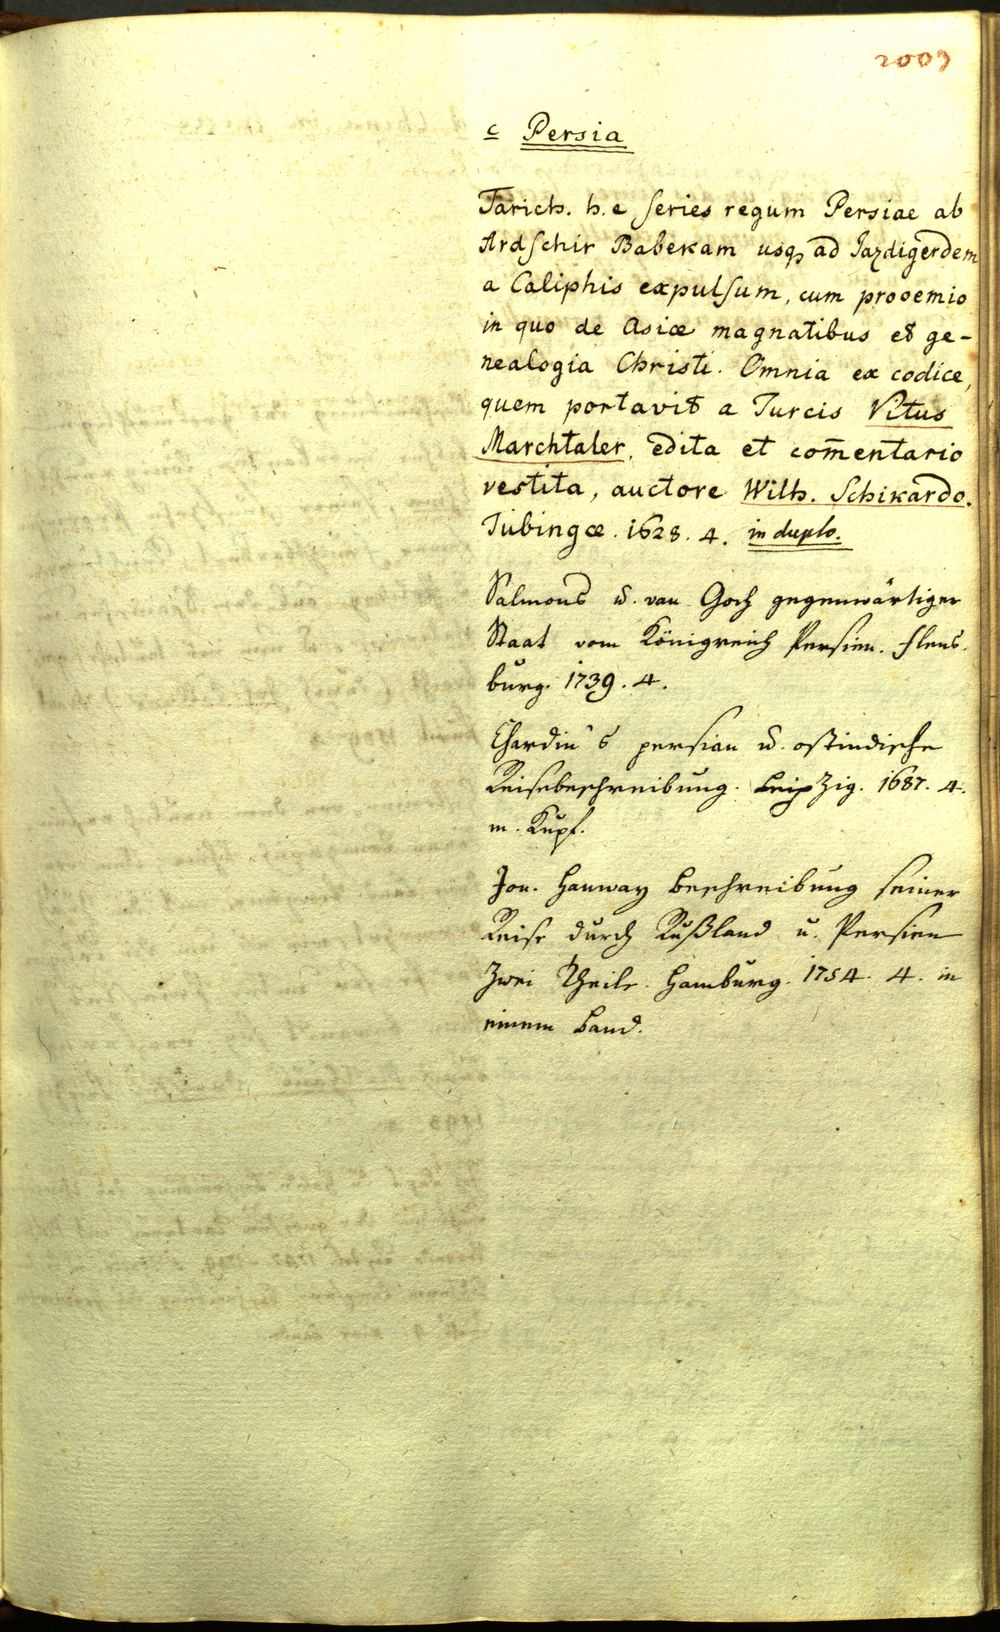 2009
c Persia
Tarich. h. e series regum Persiae ab
Ardschir Babekam usq ad Jazdigerdem
a Caliphis expulsum, cum prooemio
in quo de Asiae magnatibus et ge-
nealogia Christi. Omnia ex codice,
quem portavit a Turcis Vitus
Marchtaler, edita et com̄entario
vestita, auctore Wilh. Schikardo.
Tubingae. 1628. 4. in duplo.
Salmons u. van Goch gegenwärtiger
Staat vom Königreich Persien. Flens-
burg. 1739. 4.
Chardin's persian u. ostindische
Reisebeschreibung. Leipzig. 1687. 4.
m. Kupf.
Jon. Hanway Beschreibung seiner
Reise durch Rußland u. Persien
Zwei Theile. Hamburg. 1754. 4. in
einem Band.